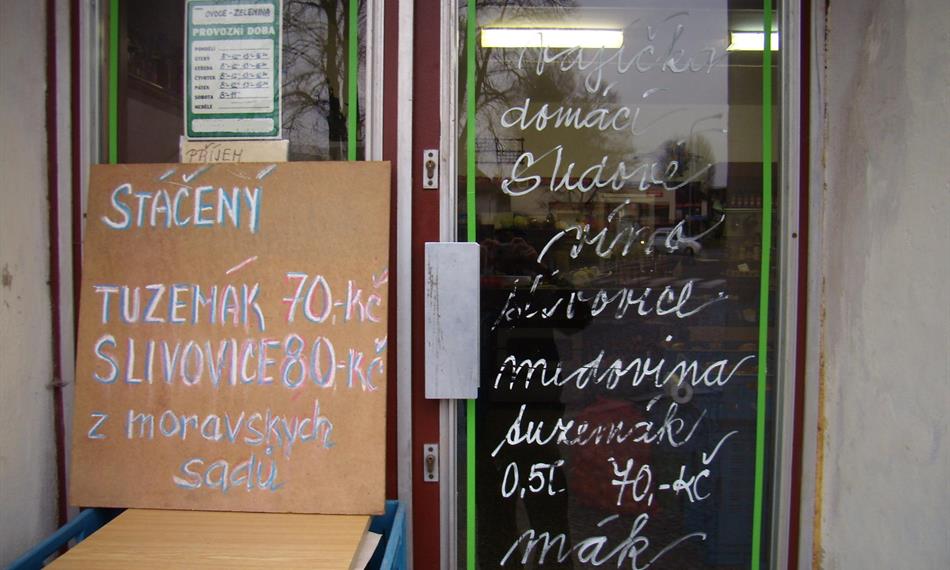 OVOCE - ZELENINA
PROVOZNÍ DOBA
PONDĚLÍ
ÚTERÝ
STŘEDA
ČTVRTEK
PÁTEK
SOBOTA
NEDĚLE
PŘÍJEM
STÁČENÝ
TUZEMÁK 70,-KČ
SLIVOVICE 80,-KČ
z moravských
sadů
Vajíčka
domácí
Sudové
víno
medovina
tuzemák
0,5l 70,-Kč
mák